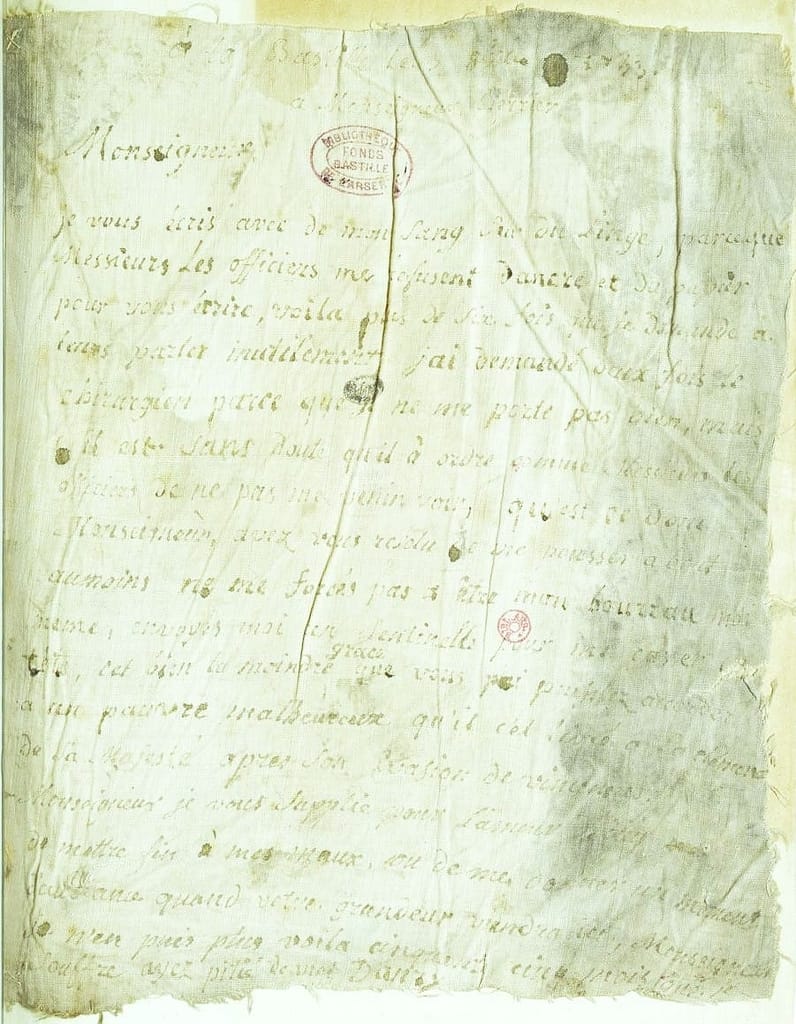 à la Bastille le
à Monseigneur
Monseigneur
BIBLIOTHEQUE
FONDS
BASTILLE
DE L'ARSENAL
je vous écris avec de mon sang sur du linge, parceque
Messieurs les officiers me refusent d'ancre et du papier
pour vous écrire, voila plus de six fois que je demande à
leurs parler inutilement, jai demandé deux fois le
chirurgien parce que je ne me porte pas bien, mais
il est sans doute qu'il à ordre comme Messieurs les
officiers de ne pas me venir voir, qu'est ce donc
Monseigneur, avez vous resolu de me pousser a bout
aumoins ne me forcés pas à être mon bourreau moi
meme, envoyés moi en sentinelle pour me casser la
tete, cet bien la moindre grace que vous
a un pauvre malheureux qu'il c'est livré a la clemence
de sa Majesté apres son evasion de vincennes
Monseigneur je vous supplie pour l'amour
de mettre fin à mes maux, ou de me donner un moment
d'audiance quand votre grandeur vandra
Je n'en puis plus voila cinquante cinq mois que je
souffre ayez pitié de moy